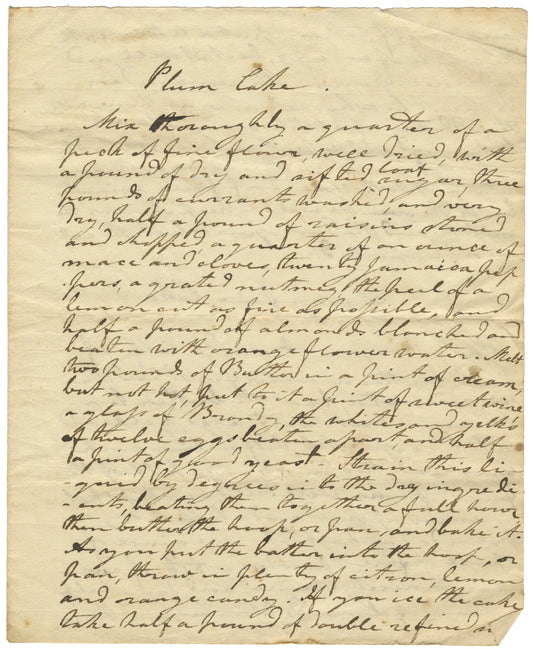 Plum Cake.
Mix thoroughly a quarter of a
peck of fine flour, well dried, with
a pound of dry and sifted loaf sugar, three
pounds of currants washed, and very
dry, half a pound of raisins stoned
and chopped, a quarter of an ounce of
mace and cloves, twenty Jamaica pep
-pers, a grated nutmeg, the peel of a
lemon cut as fine as possible, and
half a pound of almonds blanched and
beaten with orange flower water. Melt
two pounds of Butter in a pint of cream,
but not hot, put to it a pint of sweet wine
a glass of Brandy, the whites and yelks
of twelve eggs beaten apart and half
a pint of good yeast - Strain this li-
-quid by degrees into the dry ingredi
-ents, beating them together a full hour
then butter the hoop, or pan, and bake it.
As you put the batter into the hoop, or
pan, throw in plenty of citron, lemon
and orange candy. If you ice the cake
take half a pound of double refined